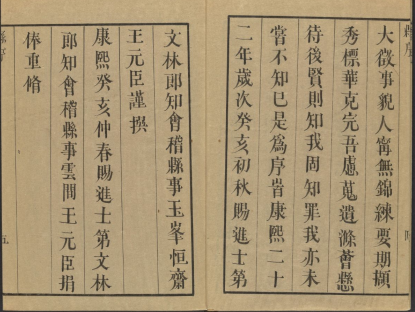 大徵事貌人甯無錦練要期擷
秀標華克完吾慮蒐遺滌薈懸
待後賢則知我固知罪我亦未
嘗不知已是爲序旹康熙二十
二年歲次癸亥初秋賜進士第
文林郎知會稽縣事玉峯恒齋
王元臣謹撰
康熙癸亥仲春賜進士第文林
郎知會稽縣事雲間王元臣捐
俸重脩
五